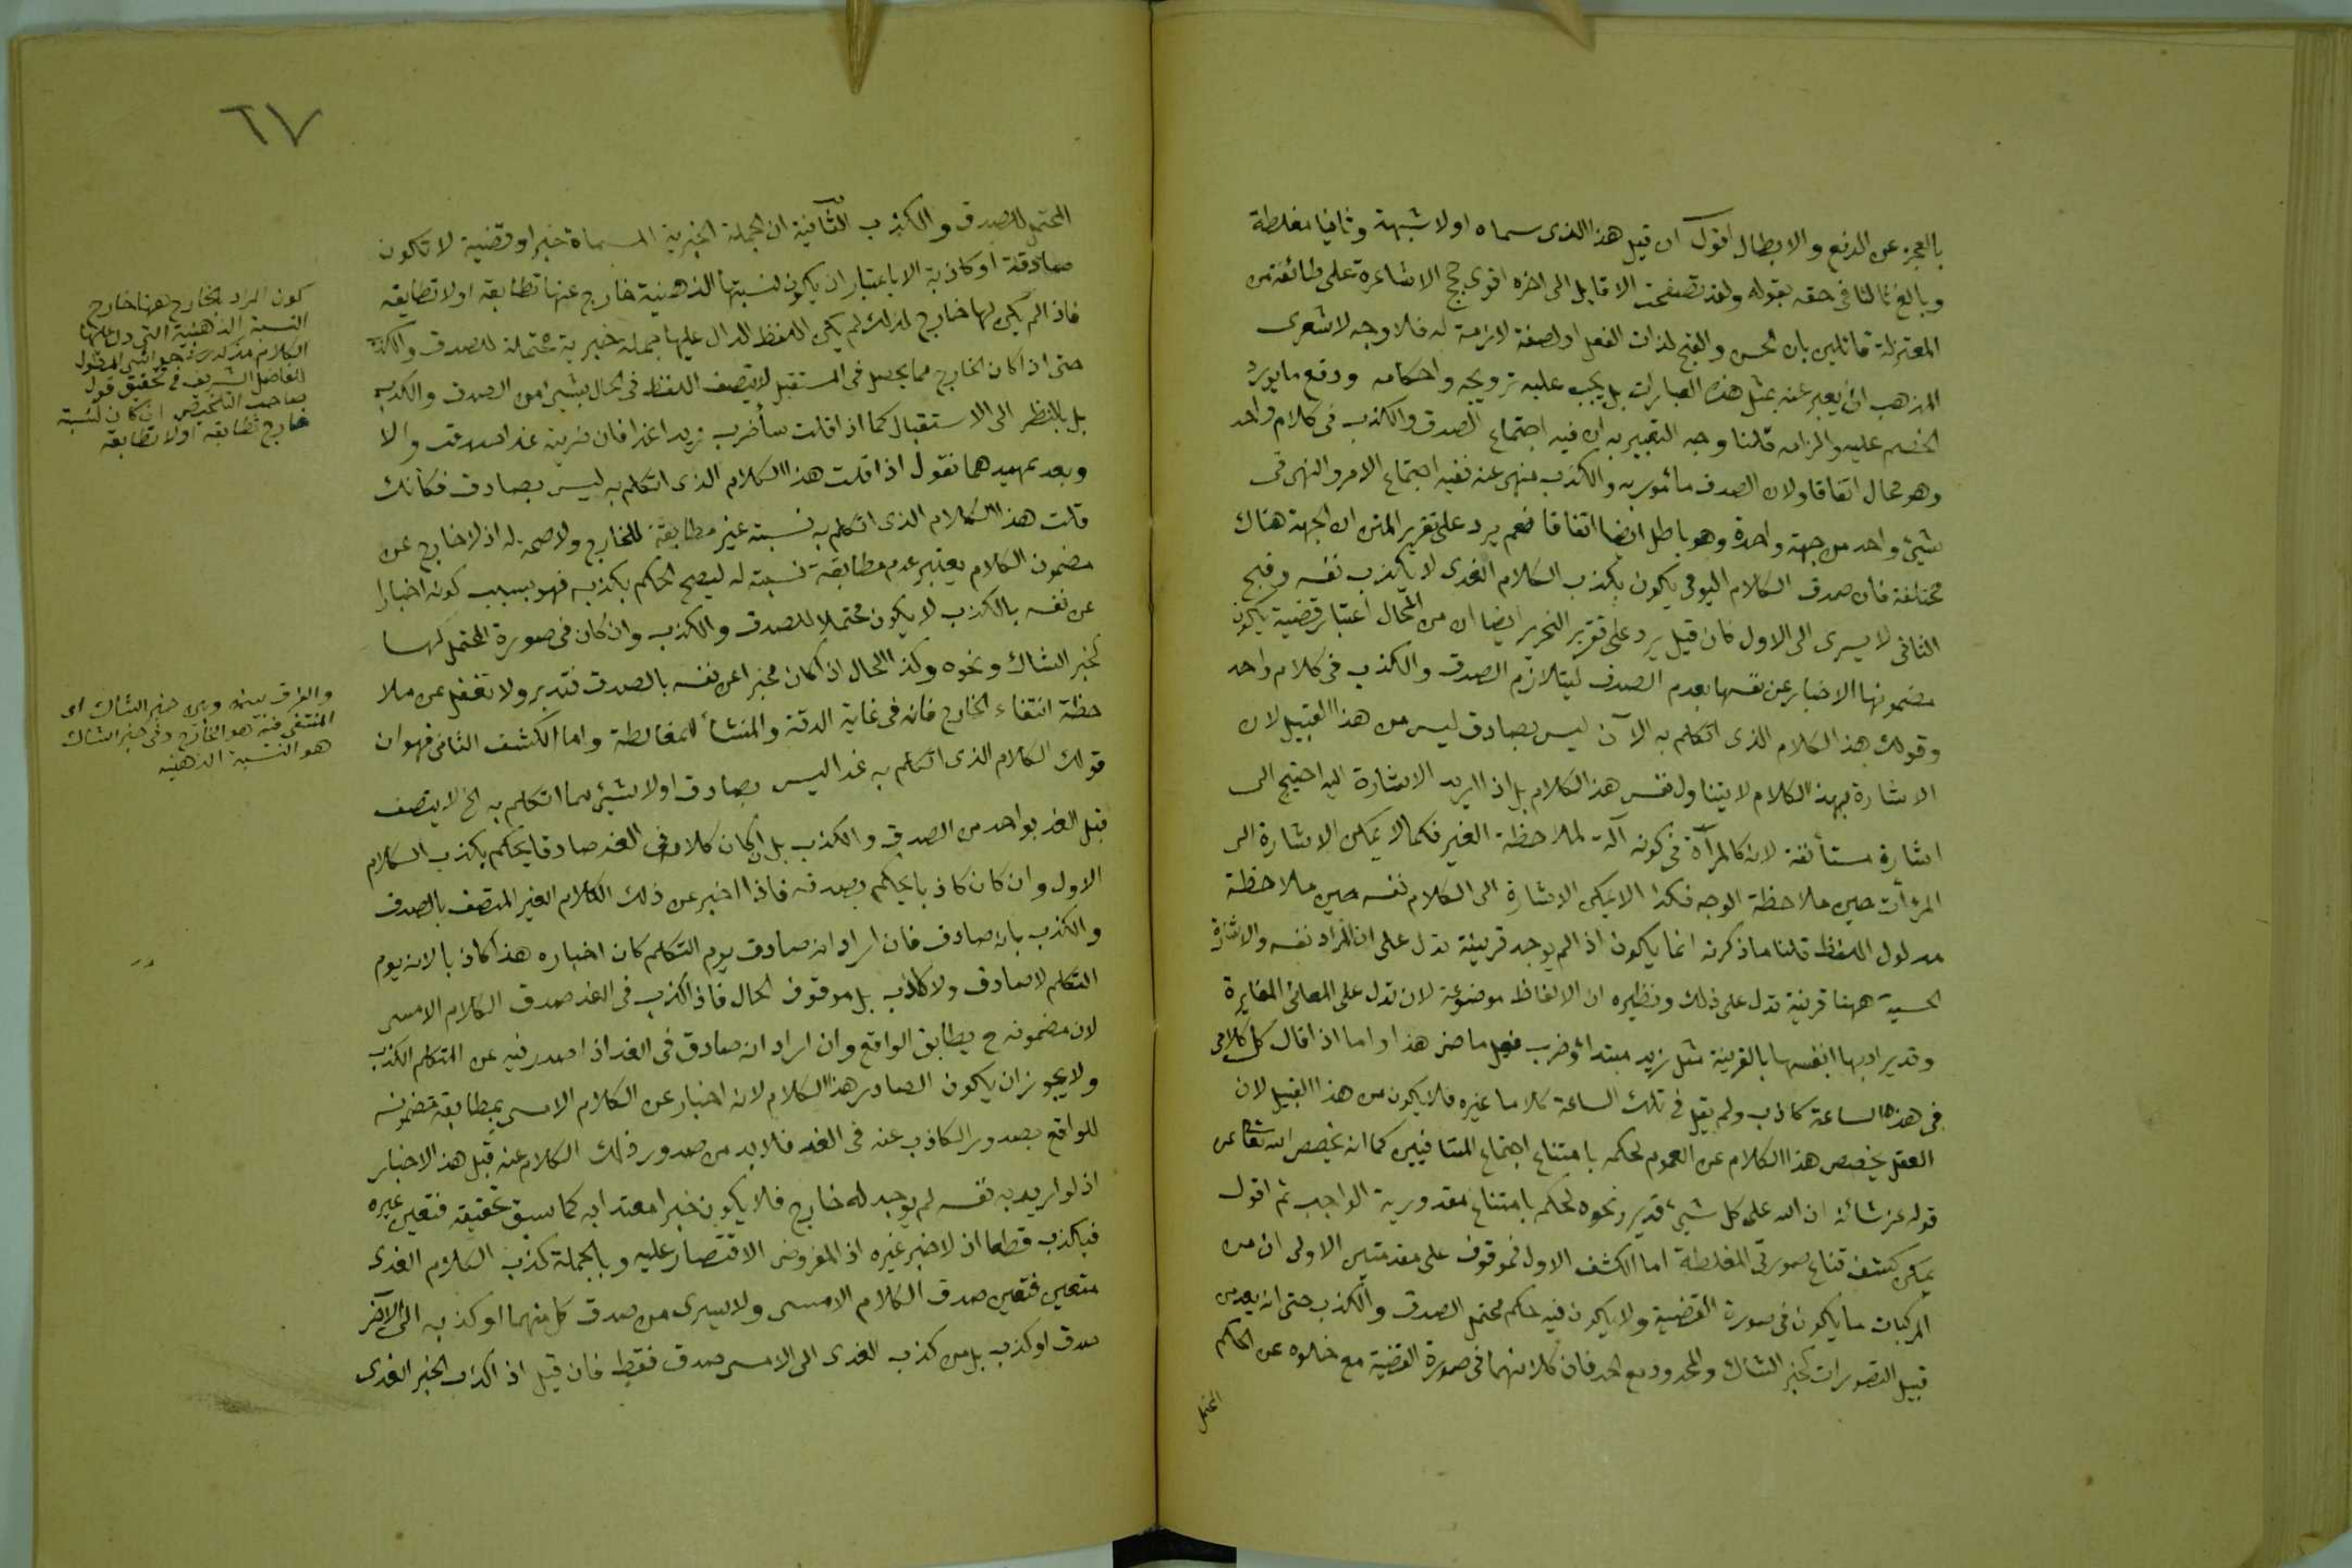 بالعجز عن الدفع والابطال اقول ان قيل هذا الذى سماه اولا شبهة وثانيا مغلطة
وبالغ ثالثا فى حقه بقوله ولقد تصفحت الاقاويل الى اخره اقوى حجج الاشاعرة على طائفة من
المعتزلة قائلين بان الحسن والقبح لذات الفعل او لصفة لازمة له فلا وجه لاشعرى
المذهب ان يعبر عنه بمثل هذه العبارات بل يجب عليه ترويجه واحكامه ودفع ما يورد
الخصم عليه والزامه قلنا وجه التعبير به ان فيه اجتماع الصدق والكذب فى كلام واحد
وهو محال اتفاقا ولان الصدق مأمور به والكذب منهى عنه ففيه اجتماع الامر والنهى فى
شيئ واحد من جهة واحدة وهو باطل ايضا اتفاقا نعم يرد على تقرير المتن ان الجهة هناك
مختلفة فان صدق الكلام اليومى يكون بكذب الكلام الغدى لا بكذب نفسه وقبح
الثانى لا يسرى الى الاول فان قيل يرد على تقرير التحرير ايضا ان من المحال اعتبار قضية يكون
مضمونها الاخبار عن نفسها بعدم الصدق ليتلازم الصدق والكذب فى كلام واحد
وقولك هذا الكلام الذى اتكلم به الآن ليس بصادق ليس من هذا القبيل لان
الاشارة بهذا الكلام لا يتناول نفس هذا الكلام بل اذا اريد الاشارة اليه احتيج الى
اشارة مستأنفة لانه كالمرآة فى كونه آلة لملاحظة الغير فكما لا يمكن الاشارة الى
المرأت حين ملاحظة الوجه فكذا لا يمكن الاشارة الى الكلام نفسه حين ملاحظة
مدلول اللفظ قلنا ما ذكرته انما يكون اذا لم يوجد قرينة تدل على ان المراد نفسه والاشارة
الحسية ههنا قرينة تدل على ذلك ونظيره ان الالفاظ موضوعة لان تدل على المعانى المغايرة
وقد يراد بها انفسها بالقرينة مثل زيد مبتدأ وضرب فعل ماض هذا واما اذا قال كل كلامى
فى هذه الساعة كاذب ولم يقل فى تلك الساعة كلاما غيره فلا يكون من هذا القبيل لان
العقل يخصص هذا الكلام عن العموم لحكمه بامتناع اجتماع المتنافيين كما انه يخصص الله تعالى عن
قوله عز شأنه ان الله على كل شيئ قدير ونحوه لحكم بامتناع مقدورية الواجب ثم اقول
يمكن كشف قناع صورتى المغلطة اما الكشف الاول فموقوف على مقدمتين الاولى ان من
المركبات ما يكون فى صورة القضية ولا يكون فيه حكم محتمل الصدق والكذب حتى انه يعد من
قبيل التصورات كخبر الشاك والمحدود مع الحد فان كلا منهما فى صورة القضية مع خلوه عن الحكم
المحتمل
٦٧
المحتمل للصدق والكذب الثانية ان الجملة الخبرية المسماة خبرا وقضية لا تكون
صادقة او كاذبة الا باعتبار ان يكون لنسبتها الذهنية خارج عنها تطابقه او لا تطابقه
فاذا لم يكن لها خارج لذلك لم يكن اللفظ الدال عليها جملة خبرية محتملة للصدق والكذب
حتى اذا كان الخارج مما يحصل فى المستقبل لا يتصف اللفظ فى الحال بشيئ من الصدق والكذب
بل بالنظر الى الاستقبال كما اذا قلت سأضرب زيدا غدا فان ضربته غدا صدقت والا
وبعد تمهيدهما نقول اذا قلت هذا الكلام الذى اتكلم به ليس بصادق فكأنك
قلت هذا الكلام الذى اتكلم به نسبته غير مطابقة للخارج ولا صحة له اذ لا خارج عن
مضمون الكلام يعتبر عدم مطابقة نسبته له ليصح الحكم بكذبه فهو بسبب كونه اخبارا
عن نفسه بالكذب لا يكون محتملا للصدق والكذب وان كان فى صورة المحتمل لهما
كخبر الشاك ونحوه وكذا الحال اذا كان مخبرا عن نفسه بالصدق فتدبر ولا تغفل عن ملا
حظة انتفاء الخارج فانه فى غاية الدقة والمنشأ للمغالطة واما الكشف الثانى فهو ان
قولك الكلام الذى اتكلم به غدا ليس بصادق او لا شيئ مما اتكلم به الخ لا يتصف
قبل الغد بواحد من الصدق والكذب بل ان كان كلامه فى الغد صادقا يحكم بكذب الكلام
الاول وان كان كاذبا يحكم بصدقه فاذا اخبر عن ذلك الكلام الغير المتصف بالصدق
والكذب بانه صادق فان اراد انه صادق يوم التكلم كان اخباره هذا كاذبا لانه يوم
التكلم لا صادق ولا كاذب بل موقوف الحال فاذا كذب فى الغد صدق الكلام الامسى
لان مضمونه ح يطابق الواقع وان اراد انه صادق فى الغد اذا صدر فيه عن المتكلم الكذب
ولا يجوز ان يكون الصادر هذا الكلام لانه اخبار عن الكلام الامسى بمطابقة مضمونه
للواقع بصدور الكاذب عنه فى الغد فلا بد من صدور ذلك الكلام عنه قبل هذا الاخبار
اذ لو اريد به نفسه لم يوجد له خارج فلا يكون خبرا معتدا به كما سبق تحقيقه فتعين غيره
فيكذب قطعا اذ لا خبر غيره اذ المفروض الاقتصار عليه وبالجملة كذب الكلام الغدى
متعين فتعين صدق الكلام الامسى ولا يسرى من صدق كل منهما او كذبه الى الآخر
صدق او كذب بل من كذب الغدى الى الامسى صدق فقط فان قيل اذا كذب الخبر الغدى
كون المراد بالخارج ههنا خارج
النسبة الذهنية التى دل عليها
الكلام مذكور فى
الفاضل الشريف فى تحقيق قول
صاحب التلخيص ان كان لنسبته
خارج تطابقه او لا تطابقه
والفرق بينه وبين خبر الشاك ان
المنتفى فيه هو الخارج وفى خبر الشاك
هو النسبة الذهنية